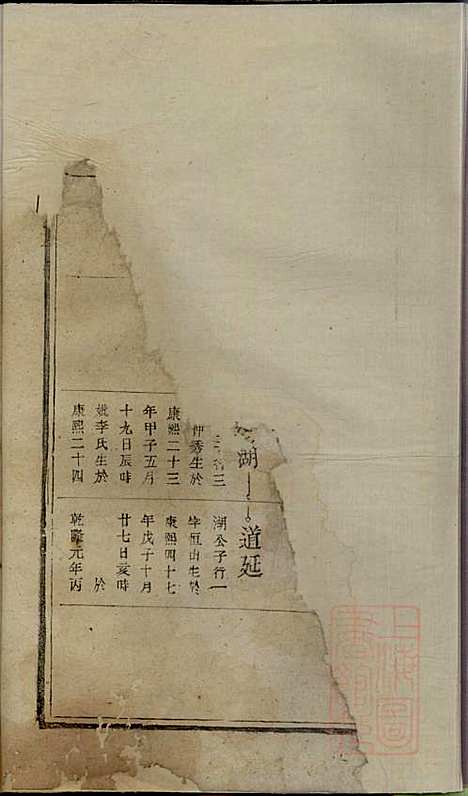 湖
三
仲秀生於
康熙二十三
年甲子五月
十九日辰時
娥李氏生於
康熙二十四
道延
湖公子行一
字恒山生於
康熙四十七
年戊子十月
廿七日亥時
於
乾隆元年丙
上海圖書館藏